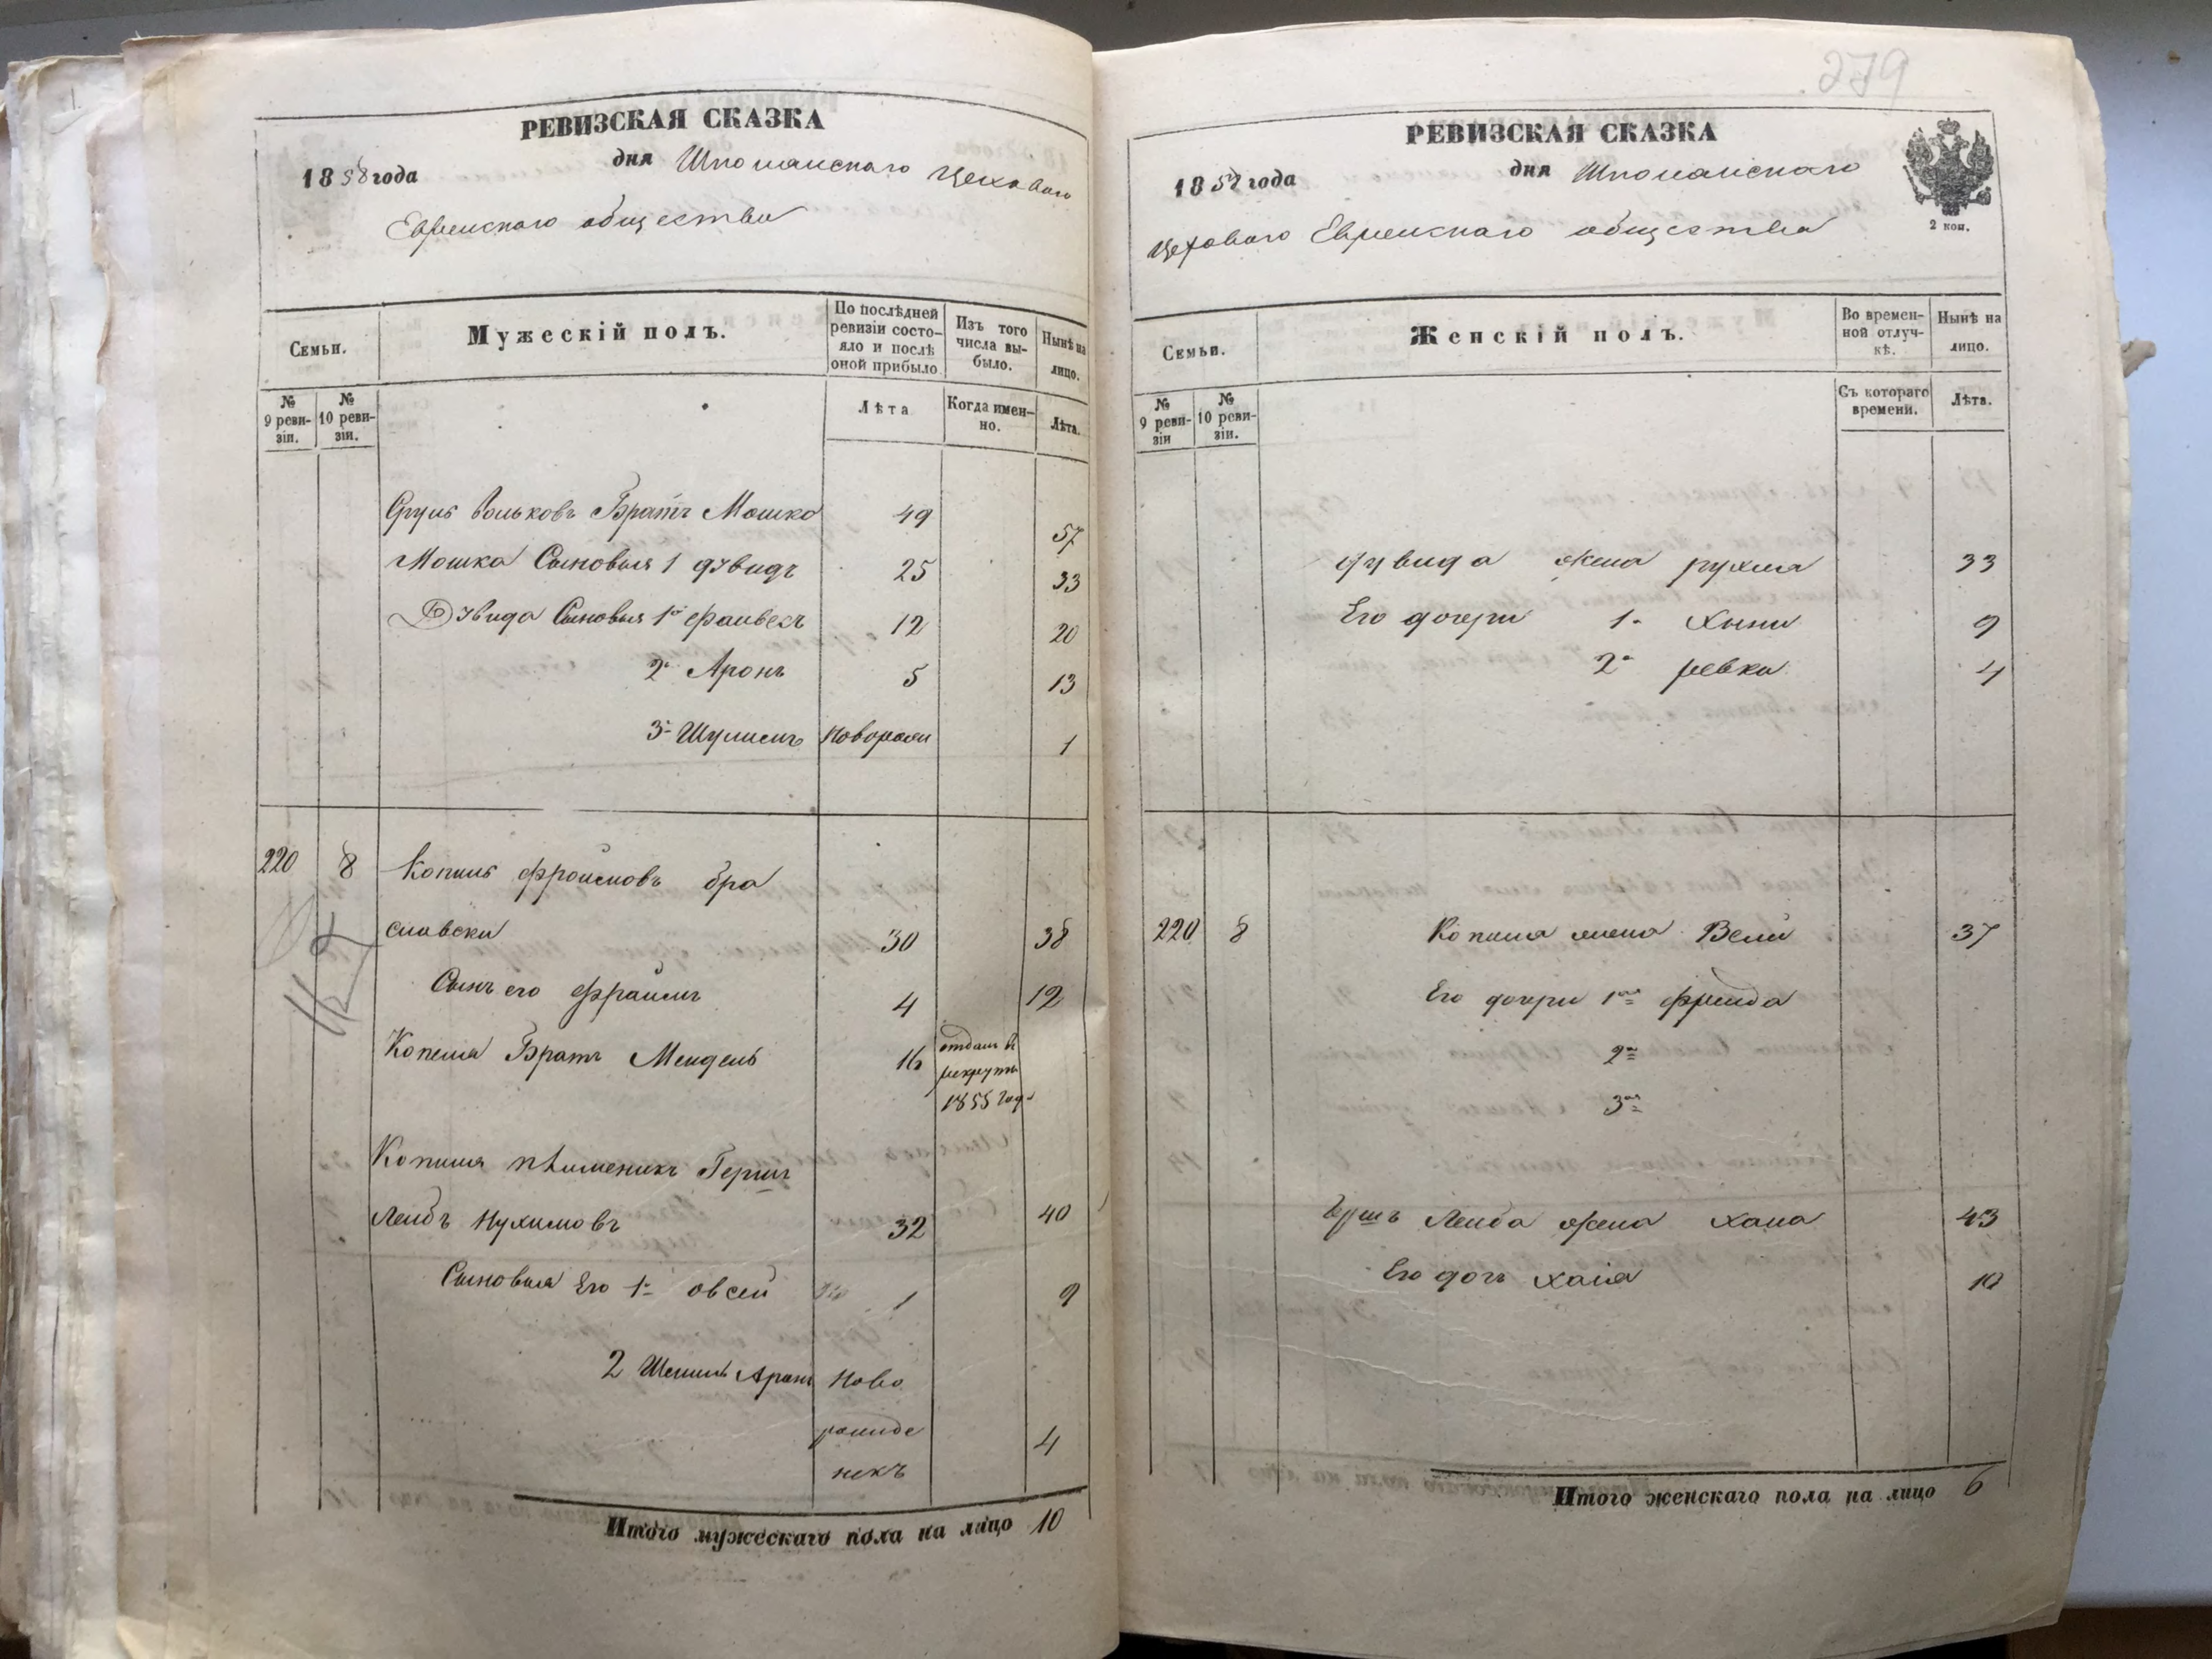 РЕВИЗСКАЯ СКАЗКА
1858 года дня Шполянского Цехового
Еврейского общества
Семьи.
Мужескій полъ.
По послѣдней ревизіи состояло и послѣ оной прибыло
Изъ того числа выбыло.
Нынѣ на лицо.
№ 9 ревизіи.
№ 10 ревизіи.
Лѣта
Когда именно.
Лѣта.
Сруль Вольковъ Братъ Мошко 49 57
Мошка Сыновья 1 Дувидъ 25 33
Дувида Сыновья 1й Файвель 12 20
2й Аронъ 5 13
3й Шулимъ Новорожд 1
220 8 Копиль Фроимовъ бра
славски 30 38
Сынъ его Фраимъ 4 12
Копеля Братъ Мендель 16 отданъ в рекруты 1855 года
Копиля племеникъ Герш
Лейбъ Нухимовъ 32 40
Сыновья Его 1й овсей 1 9
2 Шепсль Аронъ Ново
рожде 4
некъ
Итого мужескаго пола на лицо 10
279
РЕВИЗСКАЯ СКАЗКА
1858 года дня Шполянского
Цехового Еврейского общества
2 коп.
Семьи.
Женскій полъ.
Во временной отлучкѣ.
Нынѣ на лицо.
№ 9 ревизіи
№ 10 ревизіи.
Съ котораго времени.
Лѣта.
Дувида жена рухля 33
Его дочери 1я Хыня 9
2я ревка 4
220 8 Копиля жена Веля 37
Его дочери 1ая Фрейда
2ая
3ая
Герш Лейба жена хана 43
Его дочь хаія 10
Итого женскаго пола на лицо 6